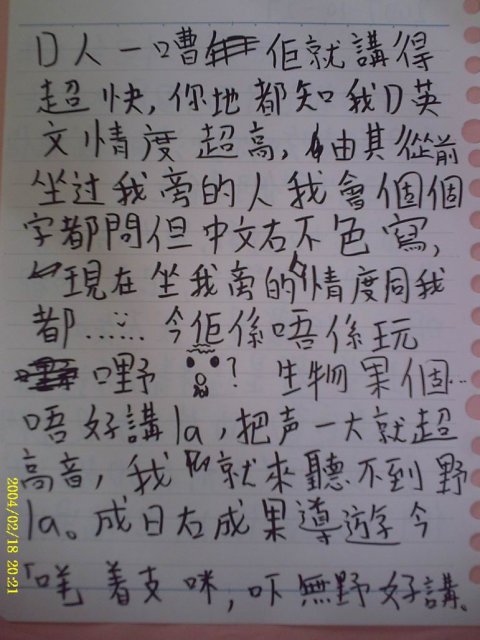 D人一嘈佢就講得
超快,你地都知我D英
文情度超高,由其從前
坐过我旁的人我會個個
字都問但中文右不色寫,
現在坐我旁的情度同我
都......今佢係唔係玩
嘢?生物果個...
唔好講la,把声一大就超
高音,我就來聽不到野
la。成日右成果導遊今
「咩着支咪,吓無野好講。
2004/02/18 20:21